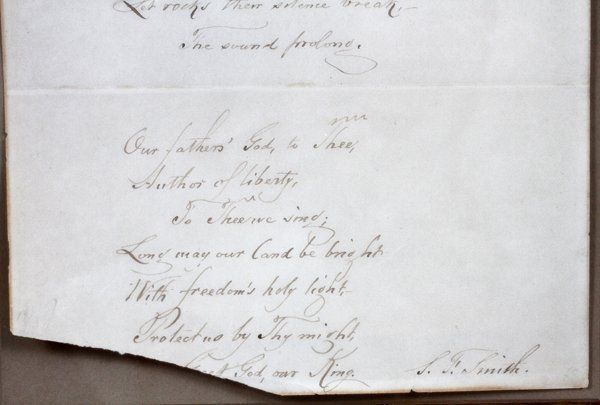 Let rocks their silence break,—
The sound prolong.
Our fathers' God, to Thee,
Author of liberty,
To Thee we sing;
Long may our land be bright
With freedom's holy light,
Protect us by Thy might,
Great God, our King.
S. F. Smith.